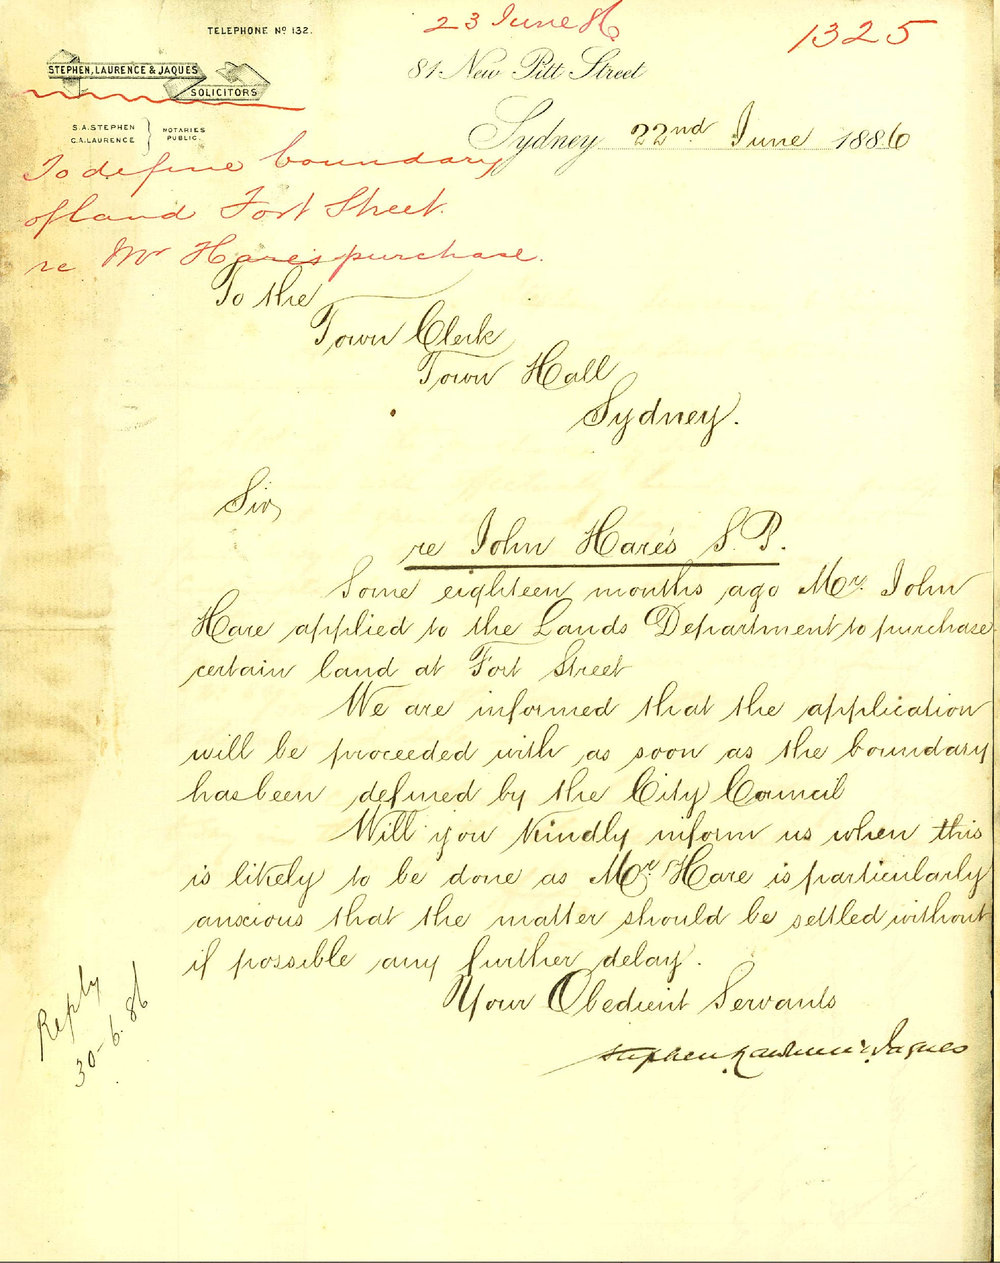 TELEPHONE Nº 132.
23 June 86.
1325
STEPHEN, LAURENCE & JAQUES
SOLICITORS
81 New Pitt Street
S.A. STEPHEN
C.A. LAURENCE
NOTARIES
PUBLIC.
Sydney 22nd June 1886
To define boundary
of land Fort Street.
re Mr Hare's purchase.
To the
Town Clerk
Town Hall
Sydney.
Sir,
re John Hare's S. P.
Some eighteen months ago Mr. John
Hare applied to the Lands Department to purchase
certain land at Fort Street
We are informed that the application
will be proceeded with as soon as the boundary
has been defined by the City Council
Will you kindly inform us when this
is likely to be done as Mr Hare is particularly
anxious that the matter should be settled without
if possible any further delay.
Your Obedient Servants
Stephen Laurence & Jaques
Reply
30-6.86